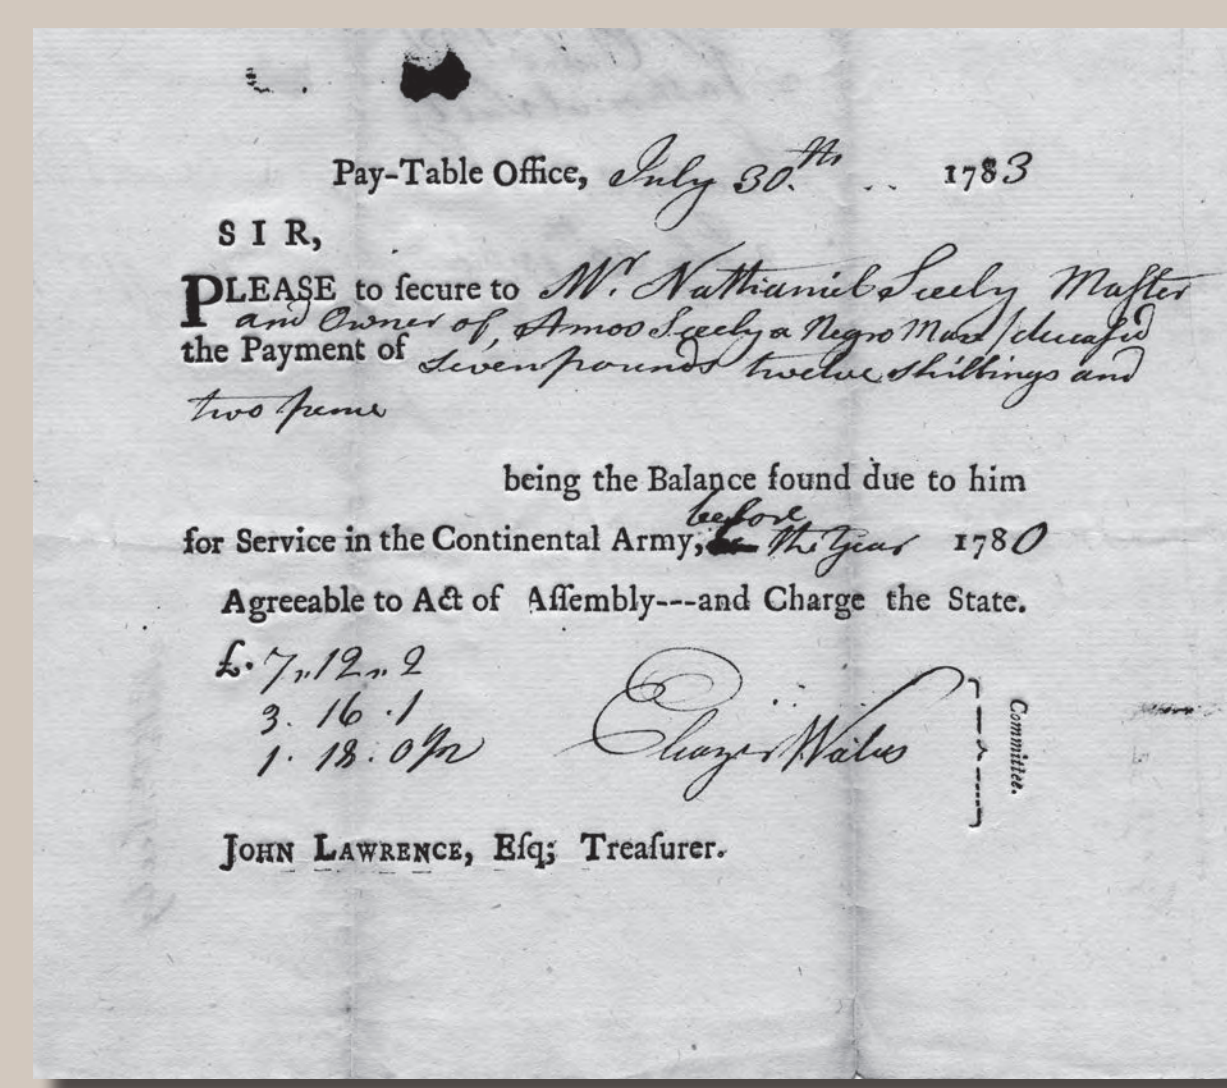 Pay-Table Office, July 30.th .. 1783
SIR,
PLEASE to ſecure to Mr. Nathaniel Seely Maſter
and Owner of, Amos Seely a Negro Man / deceaſd
the Payment of Seven pounds twelve shillings and
two pence
being the Balance found due to him
before
for Service in the Continental Army, the Year 1780
Agreeable to Act of Aſſembly---and Charge the State.
£. 7,, 12,, 2
3. 16. 1
1. 18. 0½
Eleazer Wales
Committee.
JOHN LAWRENCE, Eſq; Treaſurer.